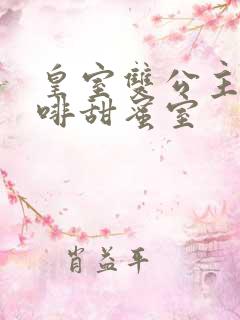 皇室雙公主
啡甜蜜室
肖益平